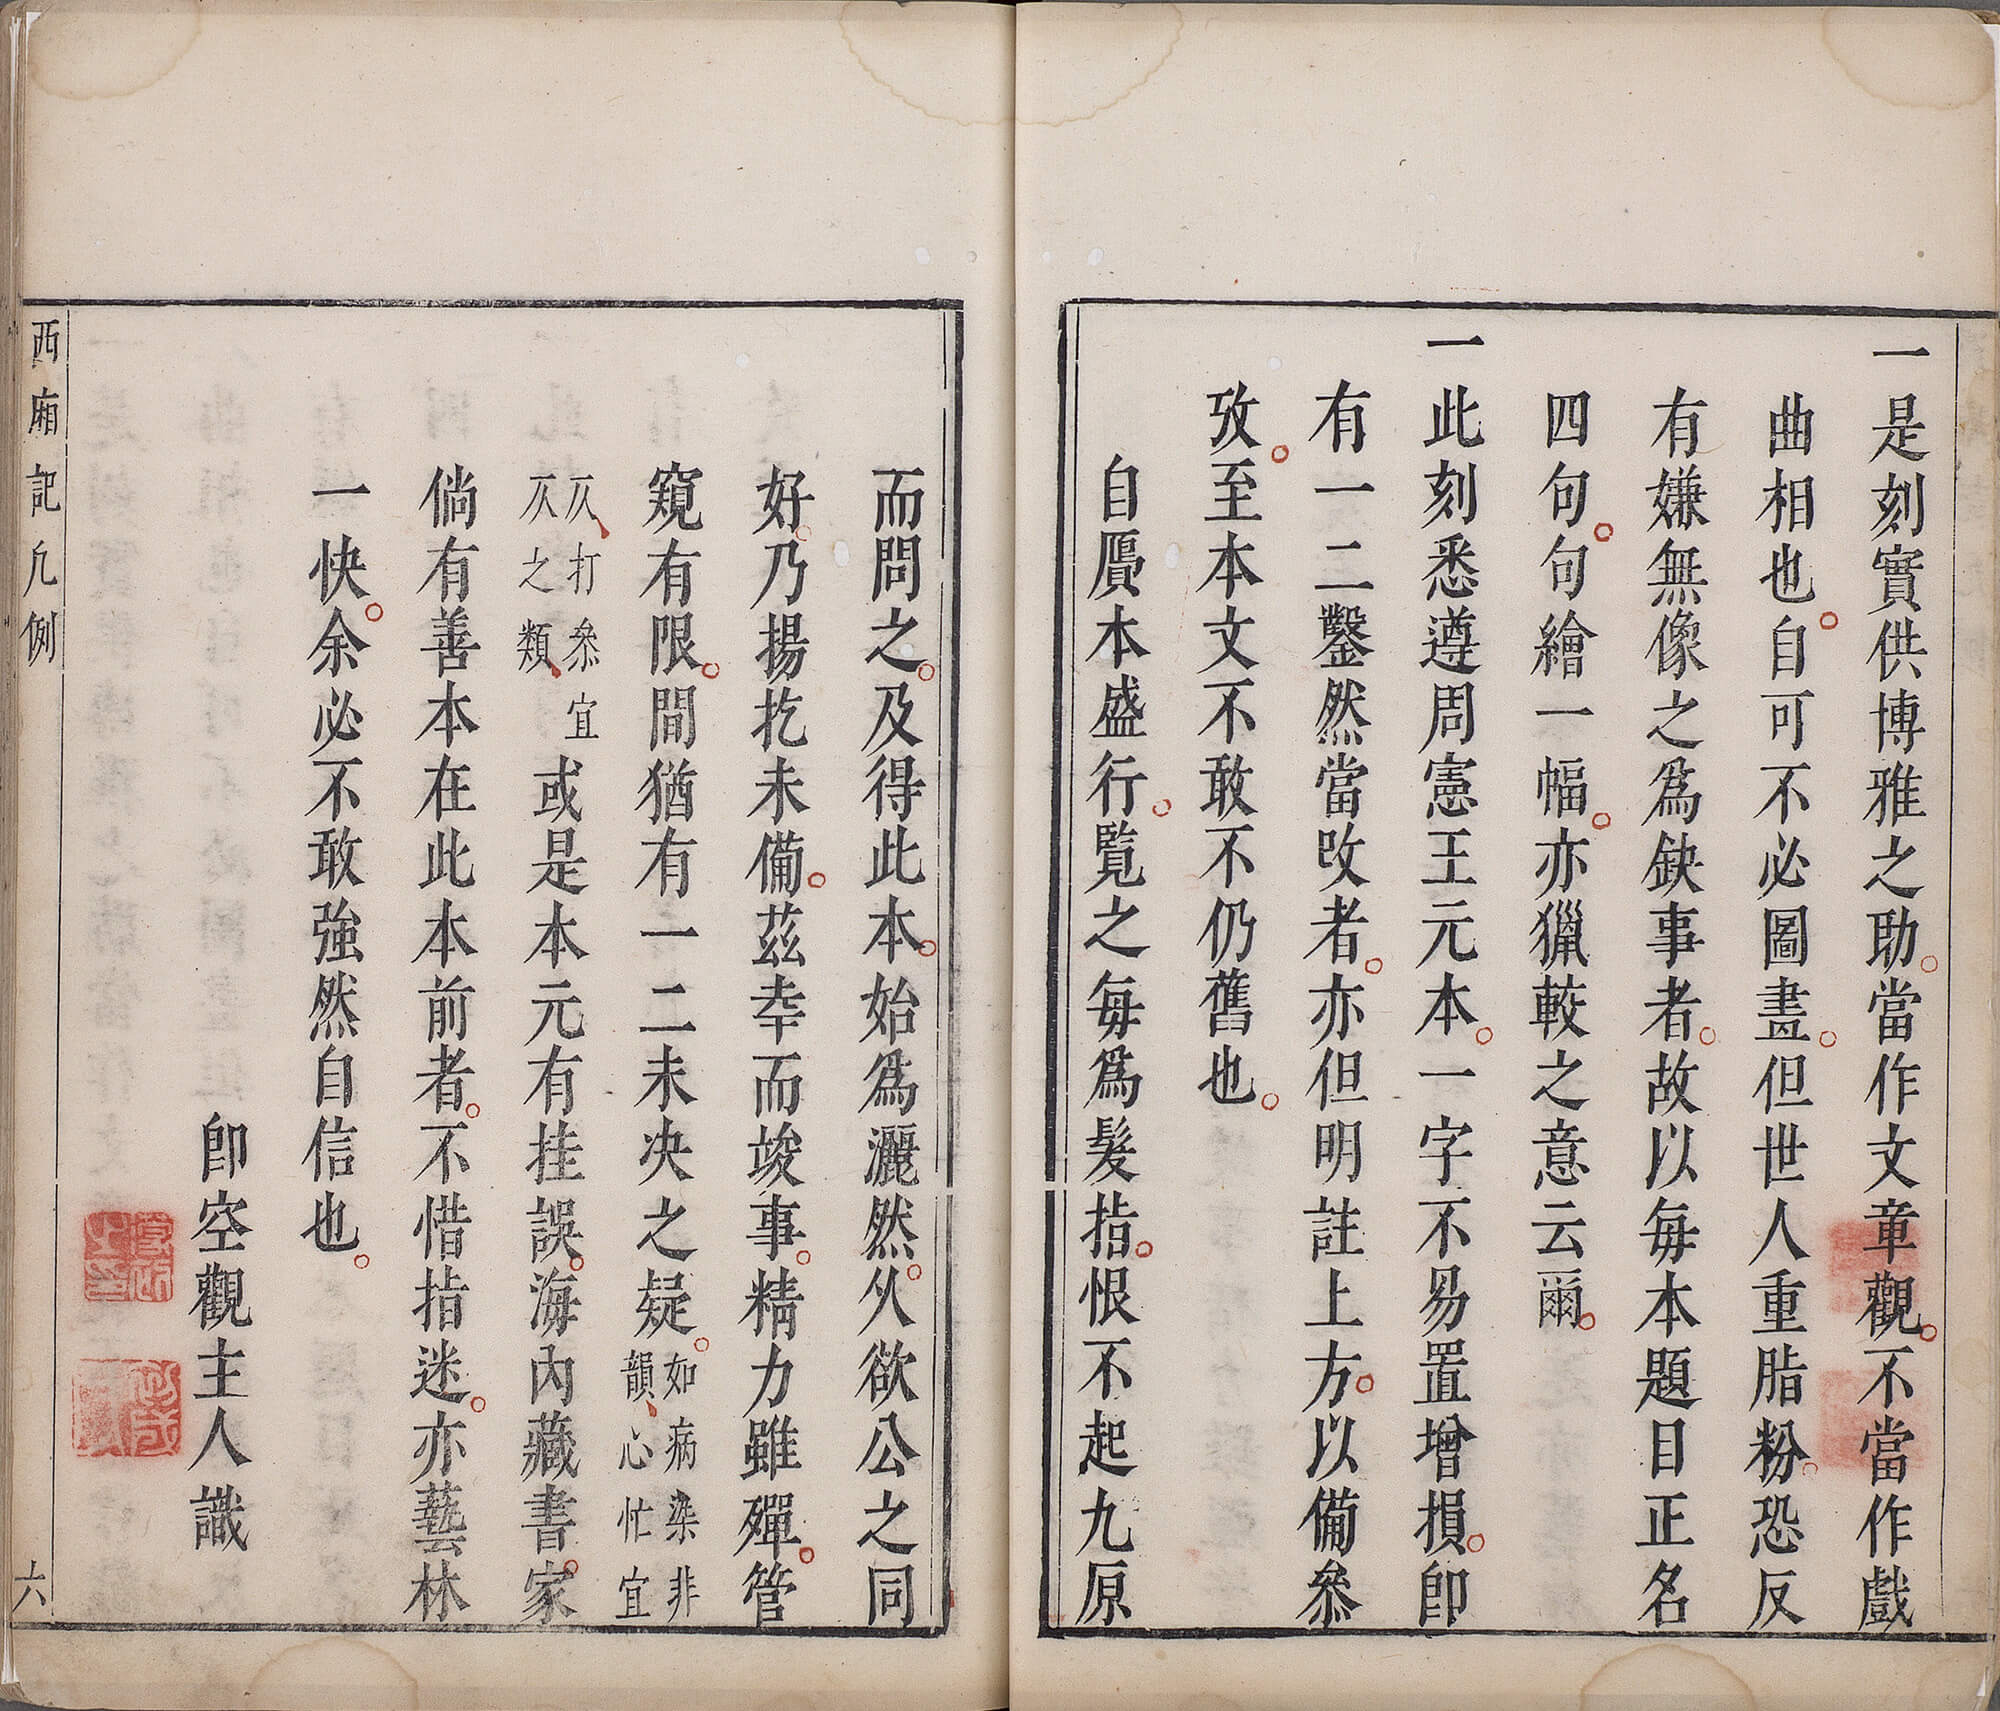 一是刻實供博雅之助當作文章觀不當作戲
曲相也自可不必圖畫但世人重脂粉恐反
有嫌無像之爲缺事者故以每本題目正名
四句句繪一幅亦獵較之意云爾
一此刻悉遵周憲王元本一字不易置增損即
有一二鑿然當改者亦但明註上方以備參
攷至本文不敢不仍舊也
自贋本盛行覽之每爲髮指恨不起九原
而問之及得此本始爲灑然久欲公之同
好乃揚扢未備茲幸而竣事精力雖殫管
窺有限間猶有一二未决之疑如病染非韻心忙宜
仄打叅宜仄之類或是本元有挂誤海內藏書家
倘有善本在此本前者不惜指迷亦藝林
一快余必不敢強然自信也
即空觀主人識
西廂記凡例
六